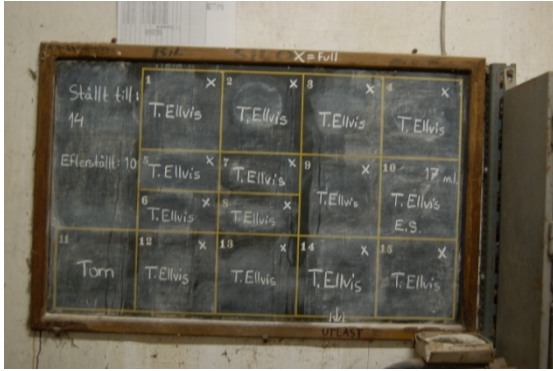 X = Full
Ställt till:
14
Efterställt: 10
1 X
T. Ellvis
2 X
T. Ellvis
3 X
T. Ellvis
4 X
T. Ellvis
5 X
T. Ellvis
7 X
T. Ellvis
9 X
T. Ellvis
10 17 ml.
T. Ellvis
E.S.
6 X
T. Ellvis
8 X
T. Ellvis
11
Tom
12 X
T. Ellvis
13 X
T. Ellvis
14 X
T. Ellvis
15 X
T. Ellvis
UTLAST